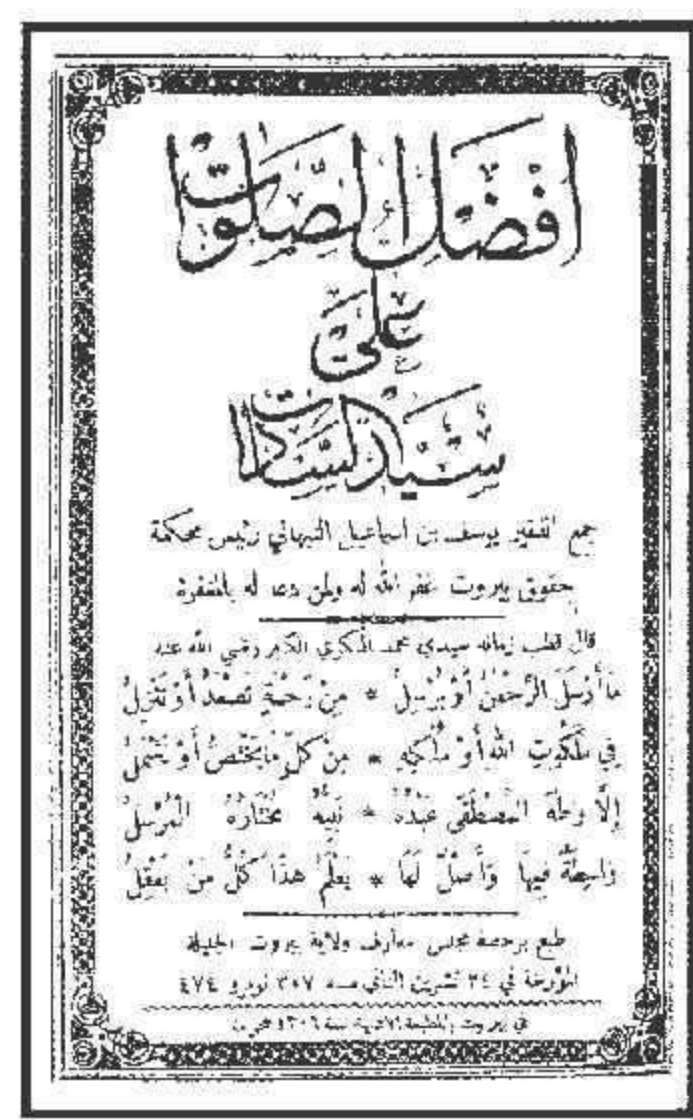 أَفْضَلُ الصَّلَوَاتِ
عَلَى
سَيِّدِ السَّادَاتِ
جمع الفقير يوسف بن اسماعيل النبهاني رئيس محكمة
حقوق بيروت غفر الله له ولمن دعا له بالمغفرة
قال قطب زمانه سيدي محمد البكري الكبير رضي الله عنه
مَا أَرْسَلَ الرَّحْمٰنُ أَوْ يُرْسِلُ * مِنْ رَحْمَةٍ تَصْعَدُ أَوْ تَنْزِلُ
فِي مَلَكُوتِ اللهِ أَوْ مُلْكِهِ * مِنْ كُلِّ مَا يَخْتَصُّ أَوْ يَشْمَلُ
إِلَّا وَطٰهَ الْمُصْطَفَى عَبْدُهُ * نَبِيُّهُ مُخْتَارُهُ الْمُرْسَلُ
وَاسِطَةٌ فِيهَا وَأَصْلٌ لَهَا * يَعْلَمُ هٰذَا كُلُّ مَنْ يَعْقِلُ
طبع برخصة مجلس معارف ولاية بيروت الجليلة
المؤرخة في ٢٤ تشرين الثاني سنة ٣٠٧ نومرو ٤٧٤
في بيروت بالمطبعة الادبية سنة ١٣٠٩